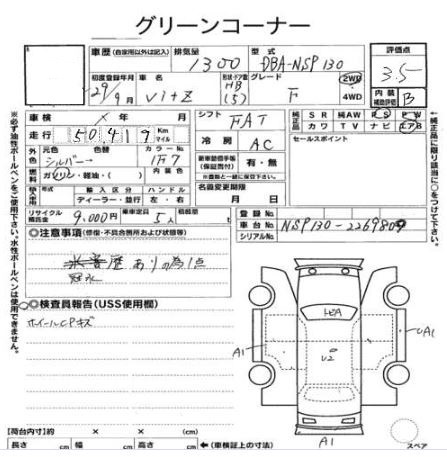 グリーンコーナー
車歴 (自家用以外は記入) 排気量 1300 型式 DBA-NSP130 評価点 3.5
初度登録年月 29/9月 車名 Vitz 形状・ドア数 HB (5) グレード F 2WD 4WD 内装補助評価 B
車検 年 月 シフト FAT 純正品 SR 純AW PS PW
カワ TV ナビ エアB
走行 50,419 Km マイル 冷房 AC セールスポイント
外色 元色 シルバー 色替 カラーNo. 1F7
燃料 ガソリン・軽油・( ) 内装色( )
新車整備手帳(保証書付) 有・無
※書類と一緒に保管されて
輸入車 輸入区分 ハンドル
ディーラー・並行 左・右
名義変更期限 月 日
リサイクル預託金 9,000円 乗車定員 5人 積載量 t
登録No.
車台No. NSP130-2269809
シリアルNo.
◎注意事項 (修復・不具合箇所および状態等)
歴ありの為1点
冠水
◎検査員報告(USS使用欄)
ホイールCPキズ
A1
A1
UA1
U2
A1
スペア
【荷台内寸】 約 × × (cm)
長さ cm 幅 cm 高さ cm ←(車検証上の寸法)
※必ず油性ボールペンをご使用下さい。水性ボールペンは使用できません。
↑純正品に限り該当項目に○をつけて下さい。